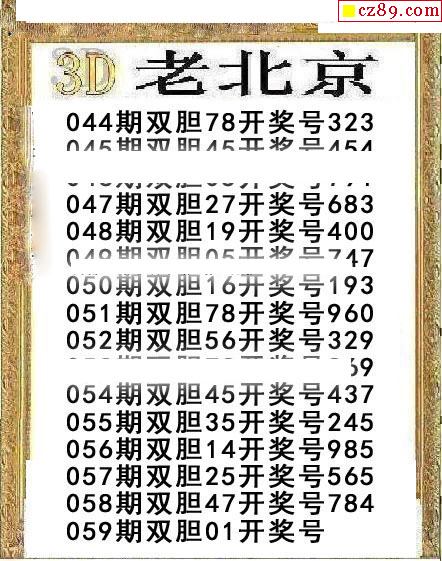 cz89.com
3D 老北京
044期双胆78开奖号323
045期双胆45开奖号454
047期双胆27开奖号683
048期双胆19开奖号400
049期双胆05开奖号747
050期双胆16开奖号193
051期双胆78开奖号960
052期双胆56开奖号329
69
054期双胆45开奖号437
055期双胆35开奖号245
056期双胆14开奖号985
057期双胆25开奖号565
058期双胆47开奖号784
059期双胆01开奖号